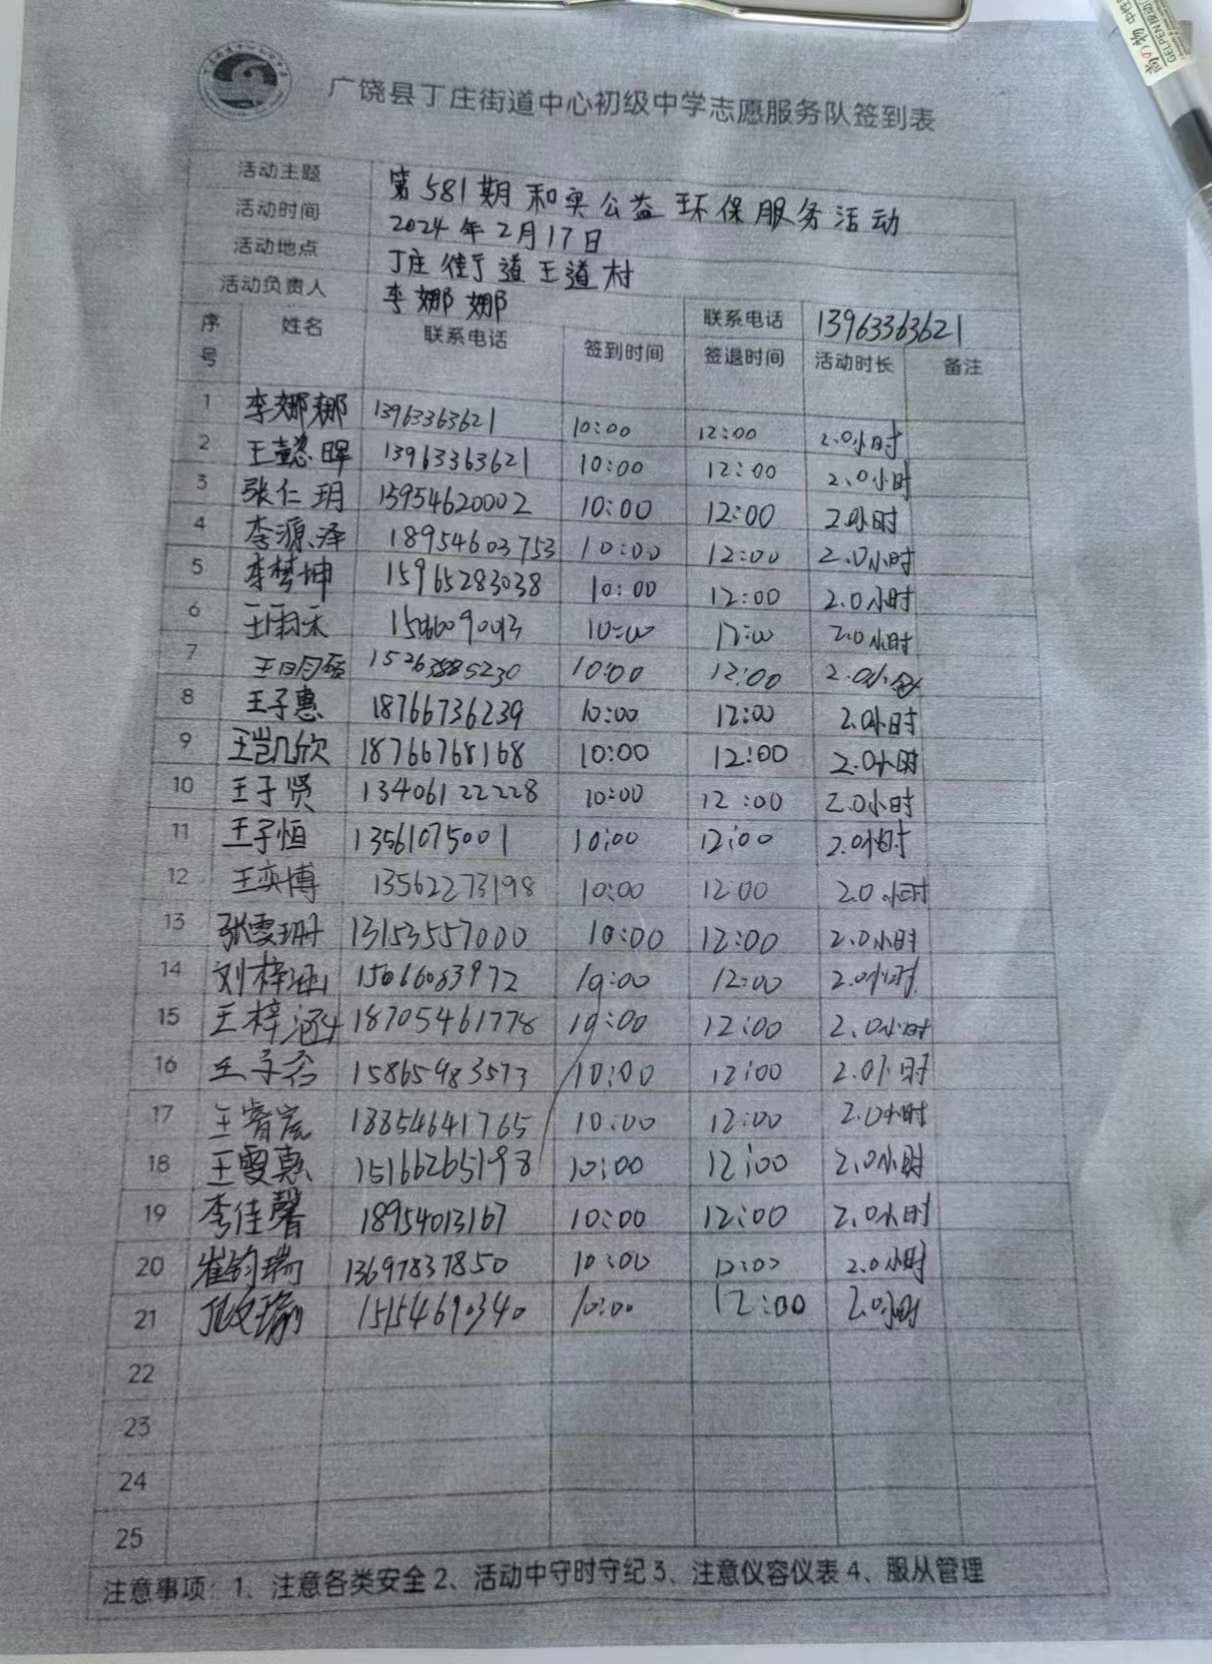 广饶县丁庄街道中心初级中学志愿服务队签到表
活动主题 第581期和美公益环保服务活动
活动时间 2024年2月17日
活动地点 丁庄街道王道村
活动负责人 李娜娜 联系电话 13963363621
序号 姓名 联系电话 签到时间 签退时间 活动时长 备注
1 李娜娜 13963363621 10:00 12:00 2.0小时
2 王懿晖 13963363621 10:00 12:00 2.0小时
3 张仁玥 15954620002 10:00 12:00 2.0小时
4 李源泽 18954603753 10:00 12:00 2.0小时
5 李梦坤 15965283038 10:00 12:00 2.0小时
6 王雨禾 10:00 12:00 2.0小时
7 王明硕 15263885230 10:00 12:00 2.0小时
8 王子惠 18766736239 10:00 12:00 2.0小时
9 王凯欣 18766768168 10:00 12:00 2.0小时
10 王子贤 13406122228 10:00 12:00 2.0小时
11 王子恒 13561075001 10:00 12:00 2.0小时
12 王奕博 13562273198 10:00 12:00 2.0小时
13 张雯珊 13153557000 10:00 12:00 2.0小时
14 刘梓涵 15066083972 10:00 12:00 2.0小时
15 王梓涵 18705461778 10:00 12:00 2.0小时
16 王子 15865983573 10:00 12:00 2.0小时
17 王睿宸 18854641765 10:00 12:00 2.0小时
18 王雯熹 15166265198 10:00 12:00 2.0小时
19 李佳馨 18954013167 10:00 12:00 2.0小时
20 崔钧瑞 13697837850 10:00 12:00 2.0小时
21 15154690340 10:00 12:00 2.0小时
22
23
24
25
注意事项：1、注意各类安全 2、活动中守时守纪 3、注意仪容仪表 4、服从管理